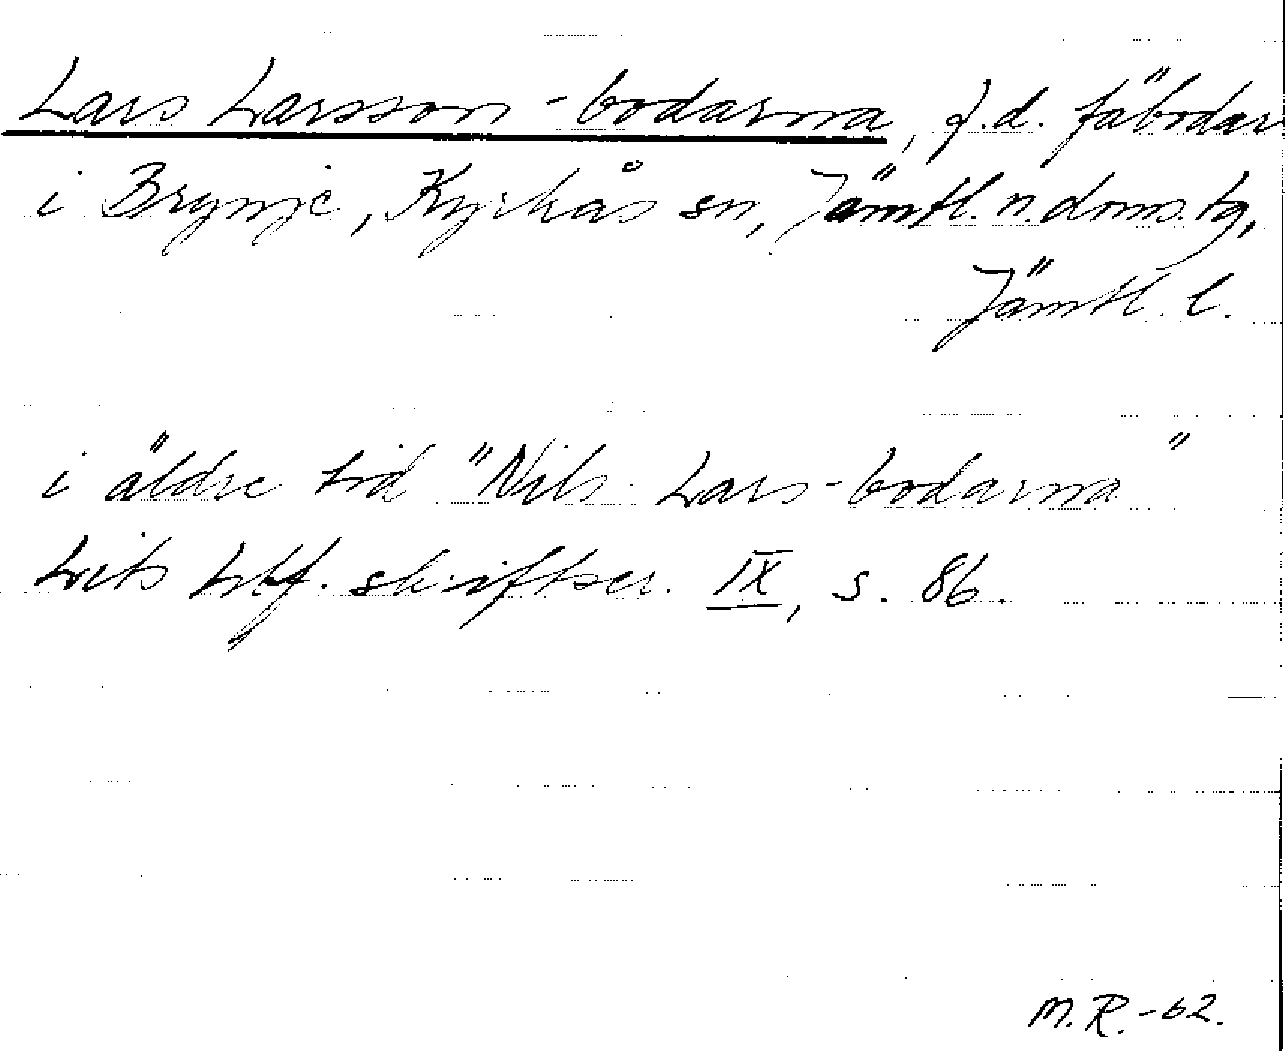 Lars Larsson-bodarna, f.d. fäbodar
i Brynje, Kyrkås sn, Jämtl. n. doms. tg,
Jämtl. l.
i äldre tid "Nils-Lars-bodarna"
Lits hbf. skriftser. IX, s. 86.
M.R.-62.